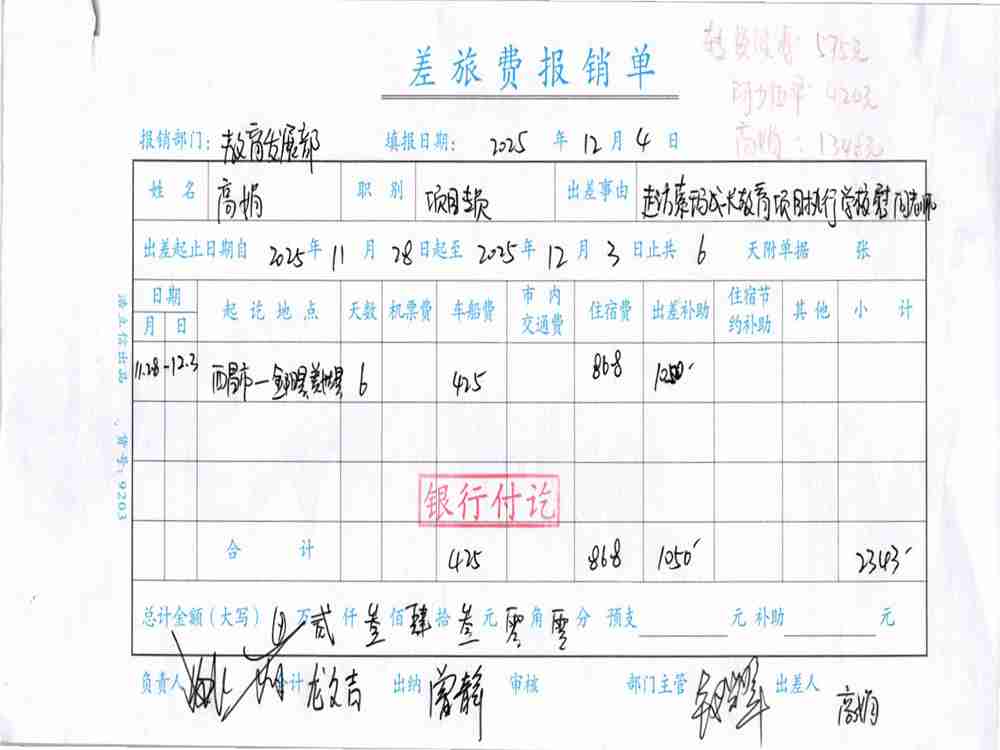 差旅费报销单
575元
420元
高娟：1348元
报销部门：教育发展部 填报日期：2025年12月4日
姓名 高娟 职别 项目 出差事由 教育项目执行学校慰问
出差起止日期自2025年11月28日起至2025年12月3日止共6天附单据 张
日期 起讫地点 天数 机票费 车船费 市内交通费 住宿费 出差补助 住宿节约补助 其他 小计
月 日
11.28-12.3 西昌市一 6 425 868 1050
银行付讫
合计 425 868 1050 2343
总计金额(大写) 万贰仟叁佰肆拾叁元零角零分 预支 元 补助 元
负责人 会计 龙文吉 出纳 曾静 审核 部门主管 出差人 高娟
货号：9203